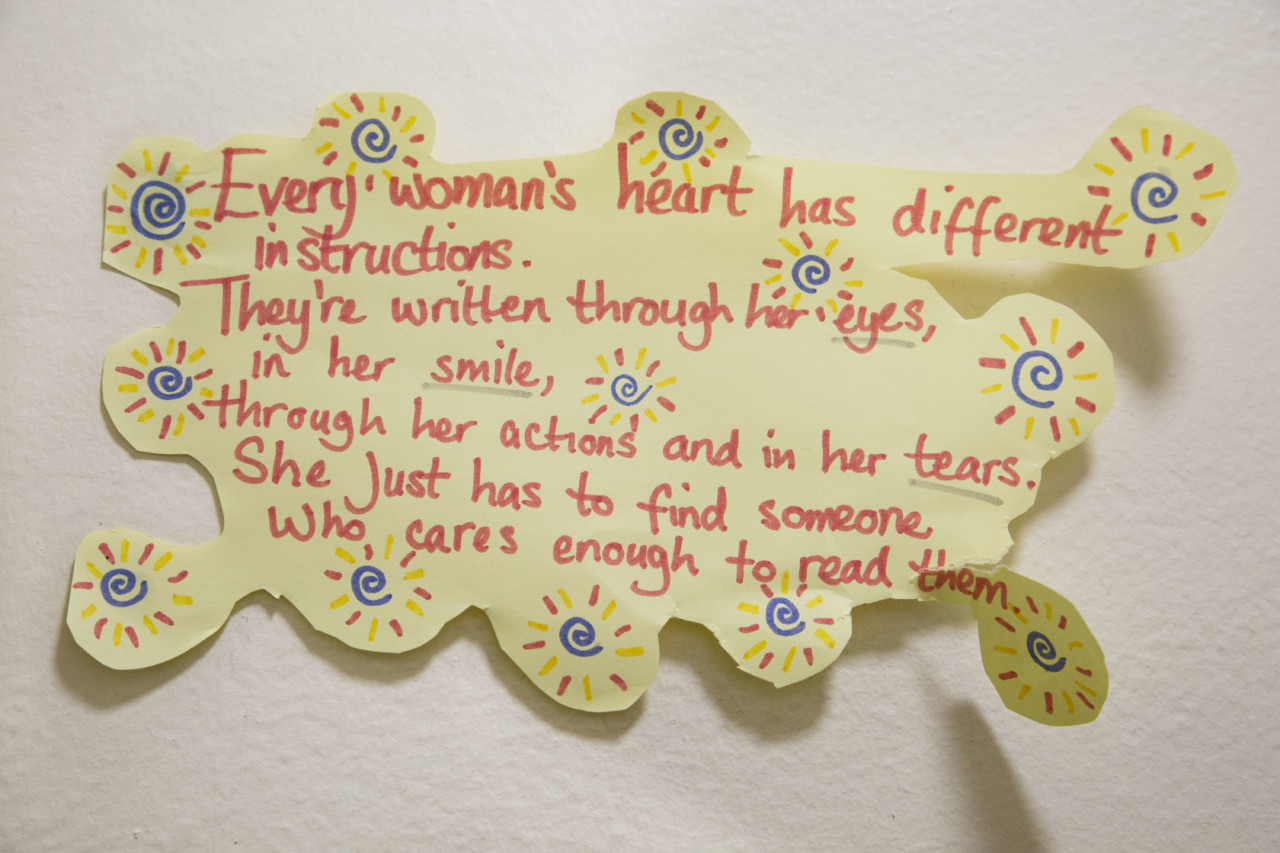 Every woman's heart has different
instructions.
They're written through her eyes,
in her smile,
through her actions and in her tears.
She Just has to find someone
who cares enough to read them.